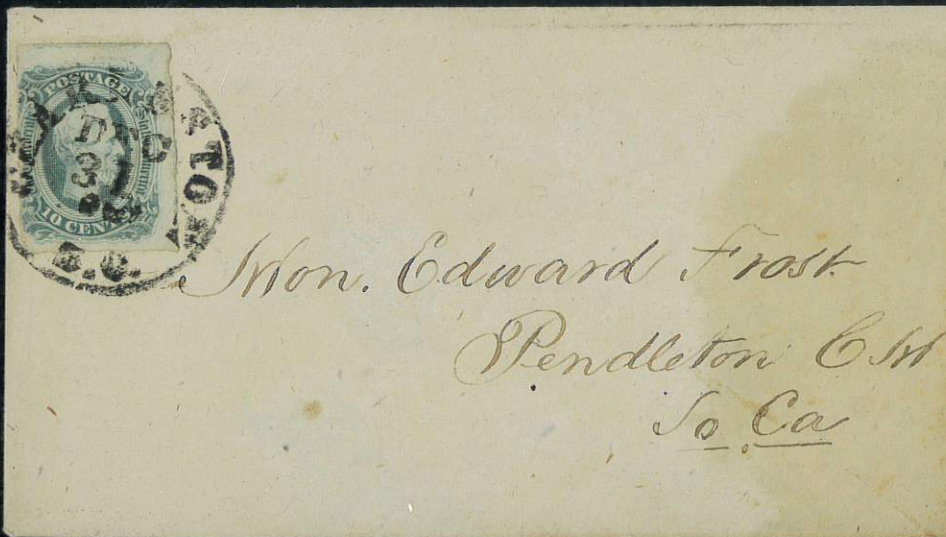 POSTAGE
10 CENTS
DEC
3
S.C.
Hon. Edward Frost
Pendleton C H
So Ca